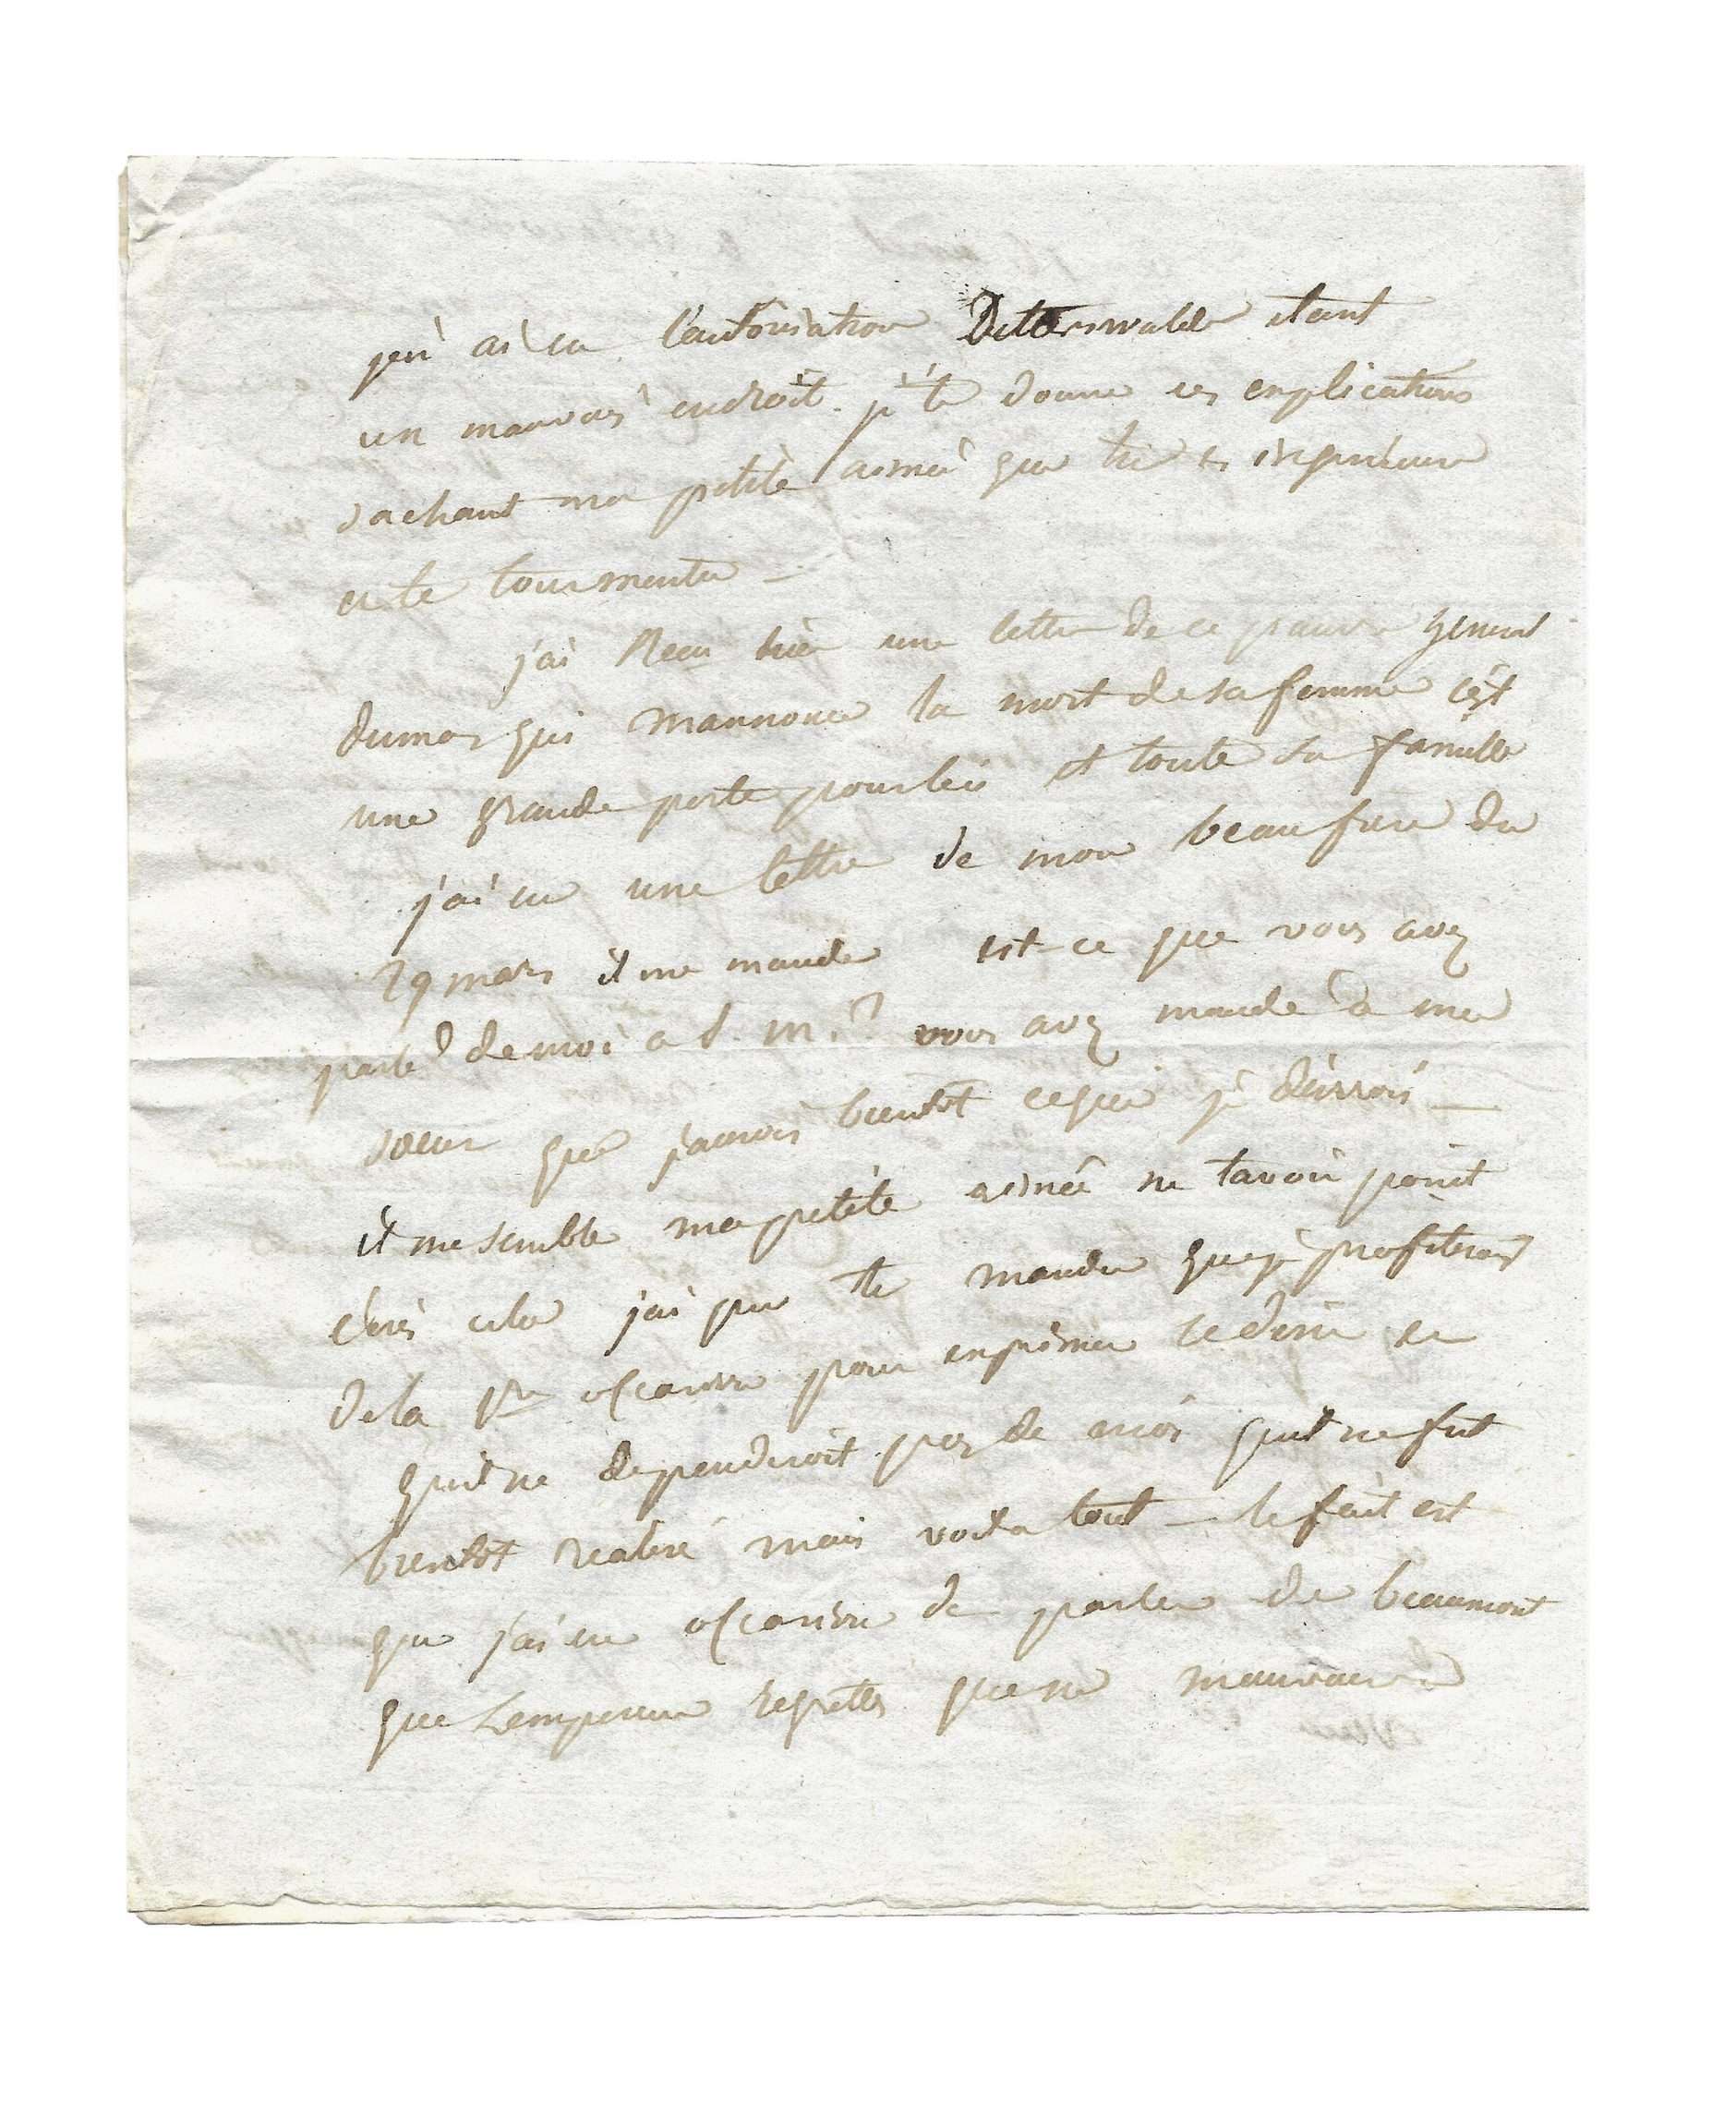 j'en ai eu l'autorisation Ditterswalde etant
un mauvais endroit. je te donne ces explications
sachant ma petite aimée que tu es
et te tourmenter —
j'ai Recu hier une lettre de ce pauvre general
dumas qui mannonce la mort de sa femme c'est
une grande perte pour lui et toute sa famille
j'ai eu une lettre de mon beaufrere du
29 mars il me mande est-ce que vous avez
parlé de moi a S. M. ? vous avez mandé à ma
soeur que j'aurois bientot ceque je desirrois —
il me semble ma petite aimée ne tavoir point
écris cela j'ai pu te mander que je profiterois
de la pre occasion pour exprimer ce desir et
quil ne dependroit pas de moi quil ne fut
bientot realisé mais voila tout — le fait est
que j'ai eu occasion de parler de beaumont
que Lempereur